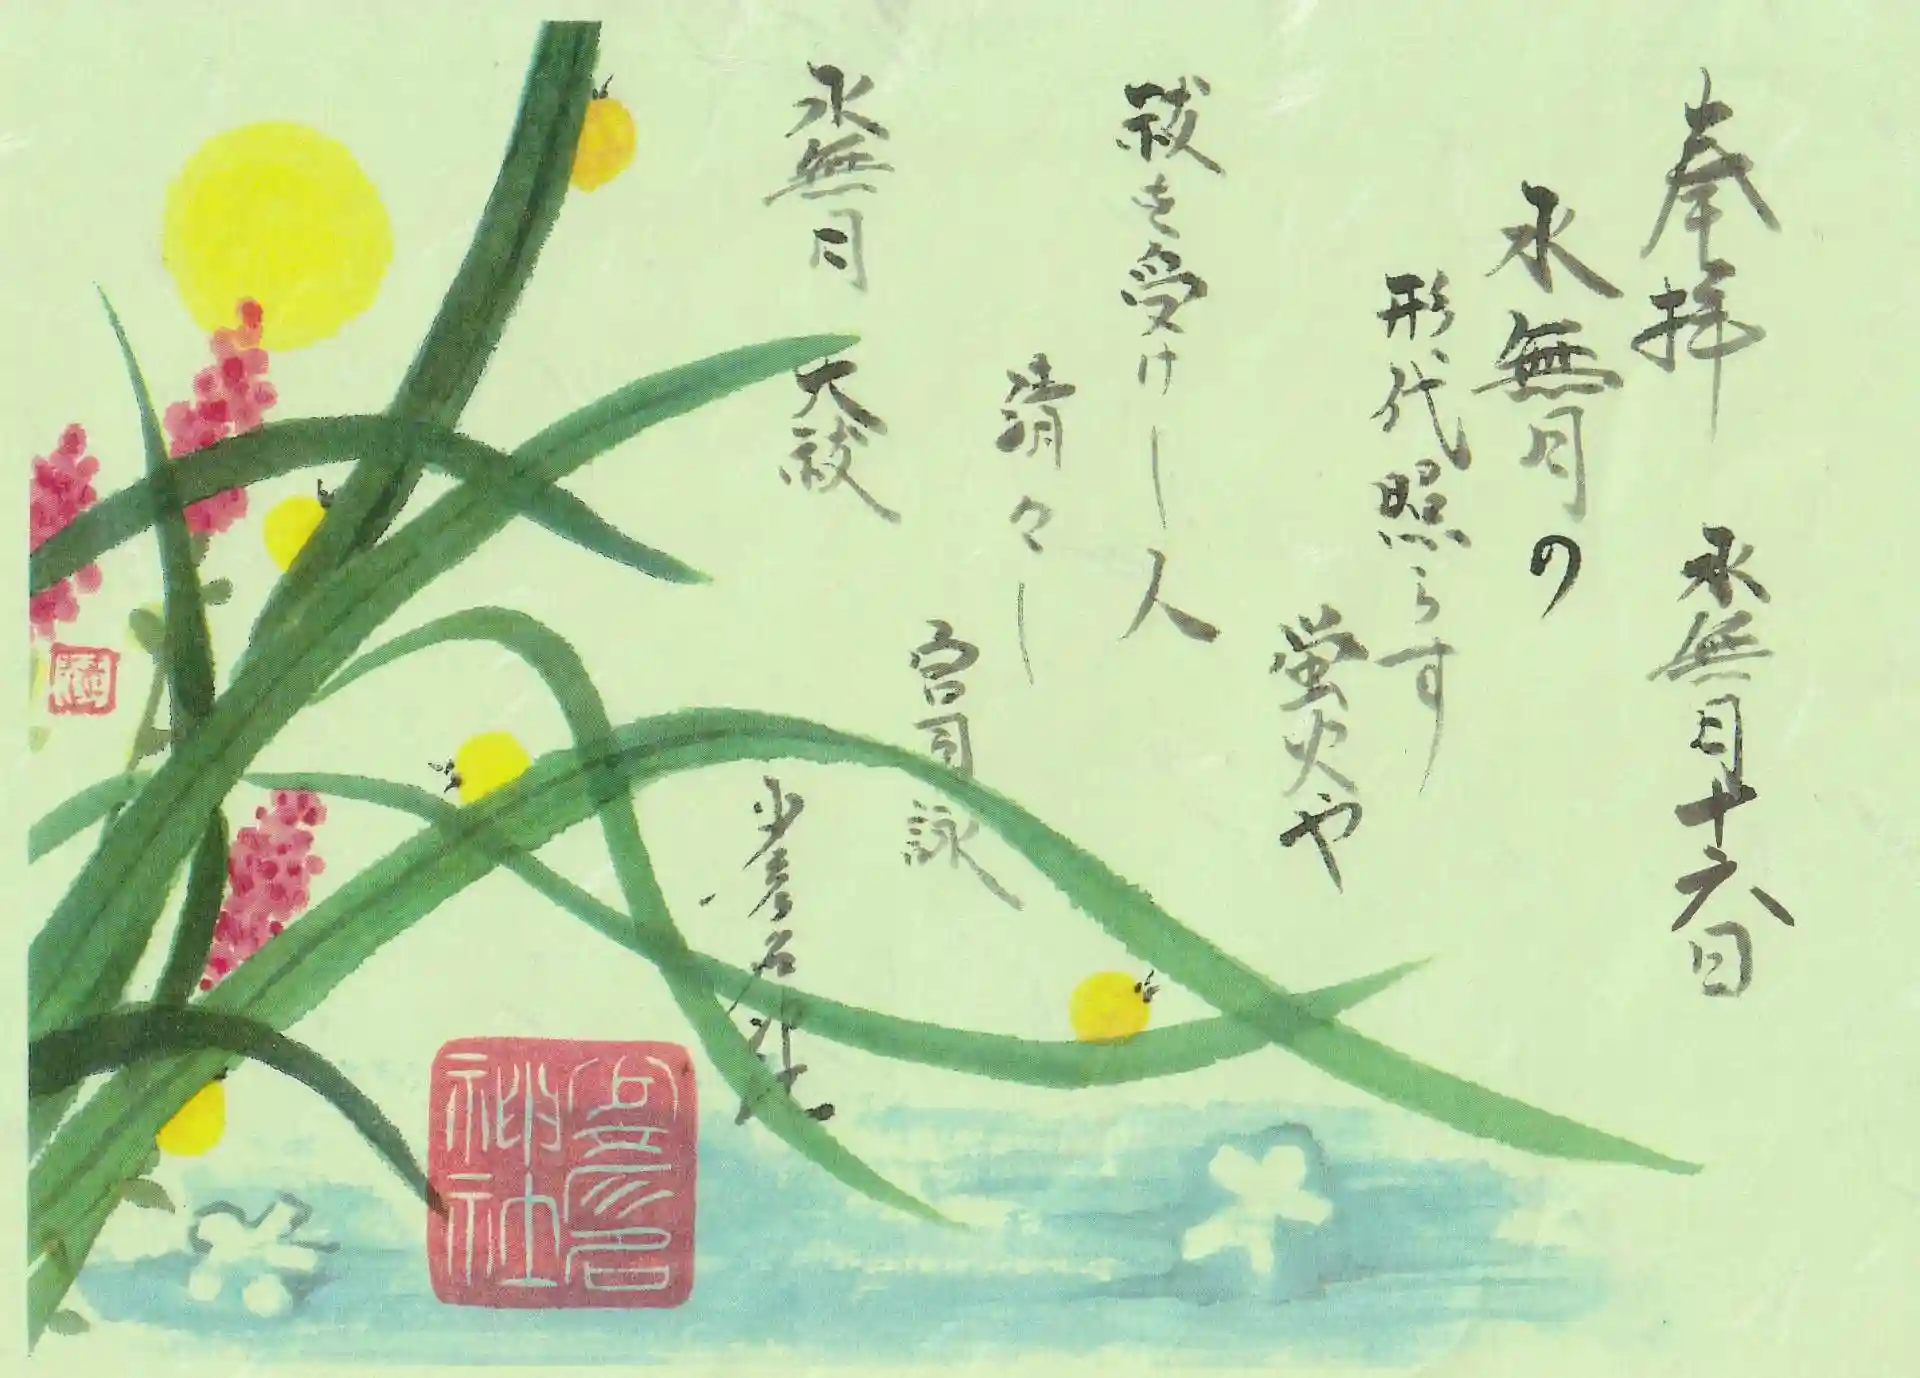 奉拝 水無月十六日
水無月の
形代照らす
蛍火や
祓を受けし人
清々し
宮司詠
水無月 大祓
少彦名神社
少彦名
神社